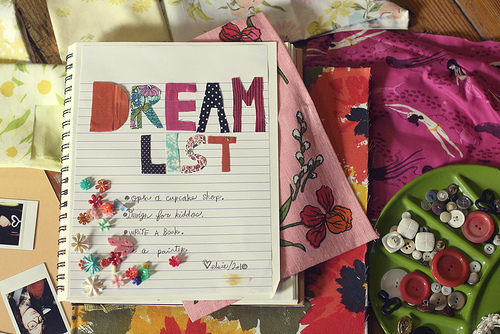 DREAM
LIST
open a cupcake shop.
Design for kiddos.
WRITE A Book.
a painter